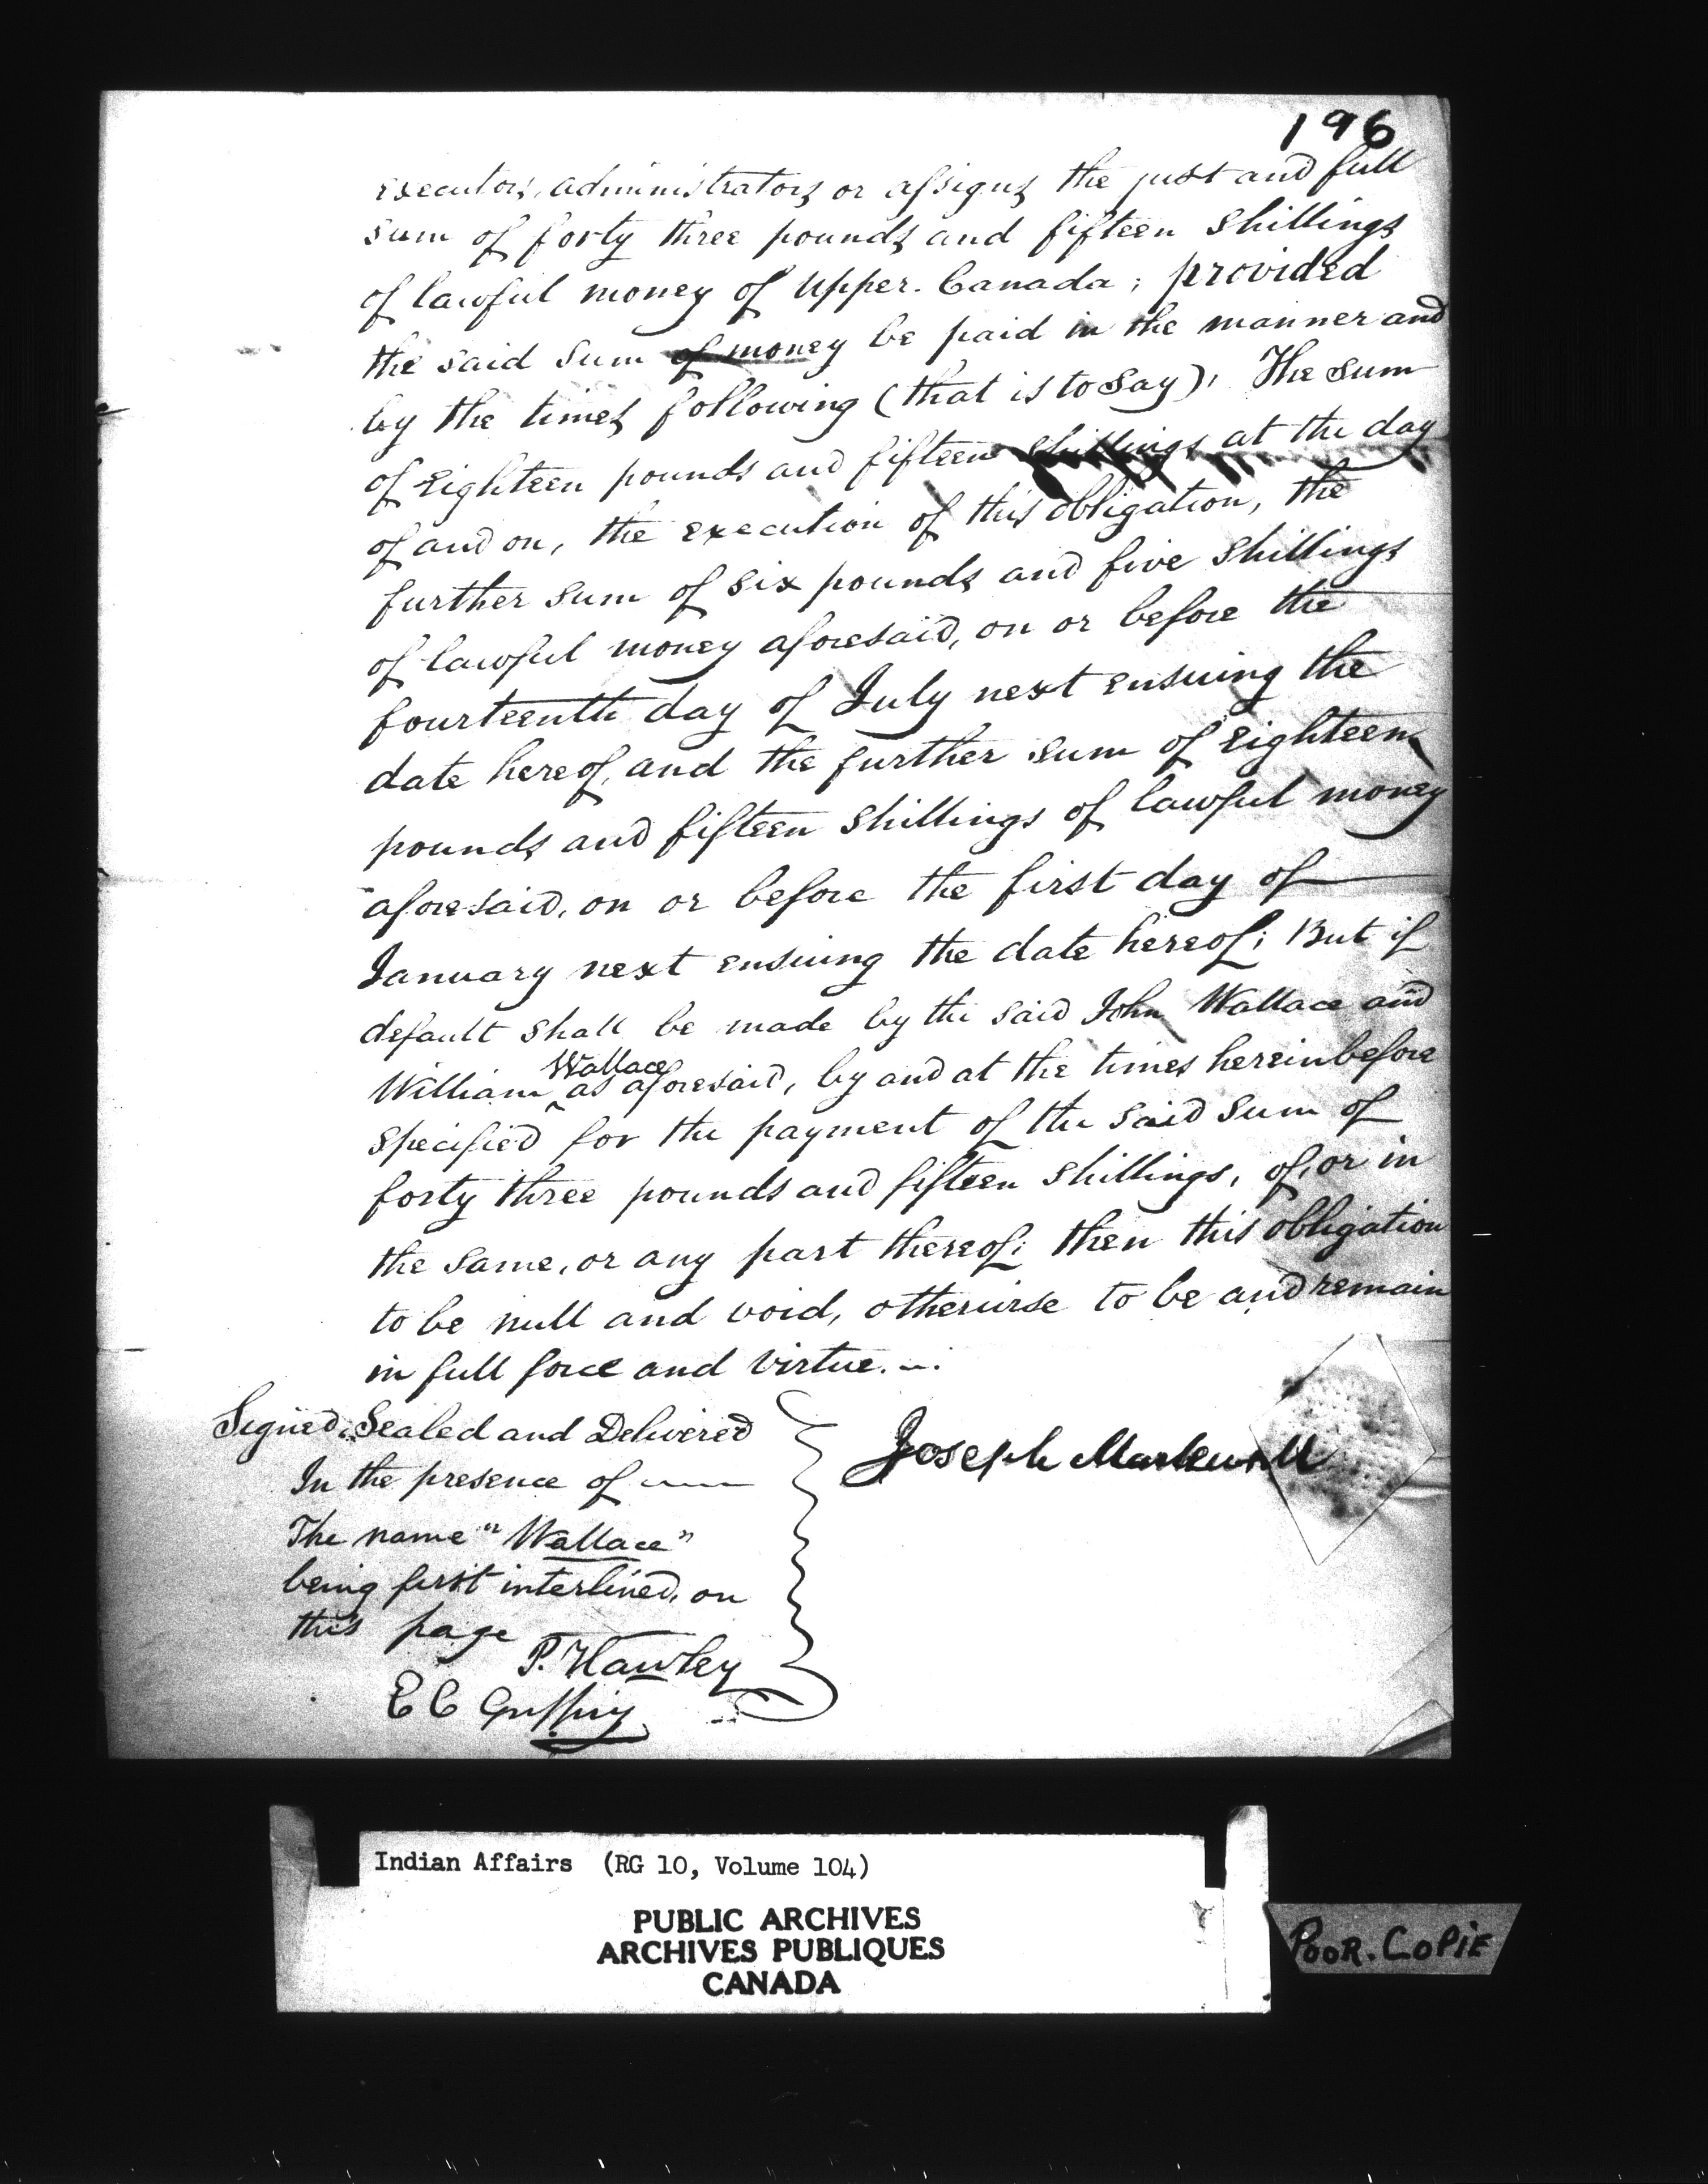 196
executors, administrators or assigns the just and full
sum of forty three pounds and fifteen shillings
of lawful money of Upper. Canada; provided
the said sum of money be paid in the manner and
by the times following (that is to say), The sum
of Eighteen pounds and fifteen shillings at the day
of and on, the execution of this obligation, the
further sum of six pounds and five shillings
of lawful money aforesaid, on or before the
fourteenth day of July next ensuing the
date hereof, and the further sum of Eighteen
pounds and fifteen shillings of lawful money
aforesaid, on or before the first day of
January next ensuing the date hereof; But if
default shall be made by the said John Wallace and
Wallace
William ^ as aforesaid, by and at the times hereinbefore
specified for the payment of the said sum of
forty three pounds and fifteen shillings, of, or in
the same, or any part thereof; then this obligation
to be null and void, otherwise to be and remain
in full force and virtue.
Signed, Sealed and Delivered
In the presence of
Joseph
The name "Wallace"
being first interlined, on
this page
P. Hawley
E C Griffin
Indian Affairs (RG 10, Volume 104)
PUBLIC ARCHIVES
ARCHIVES PUBLIQUES
CANADA
POOR. COPIE